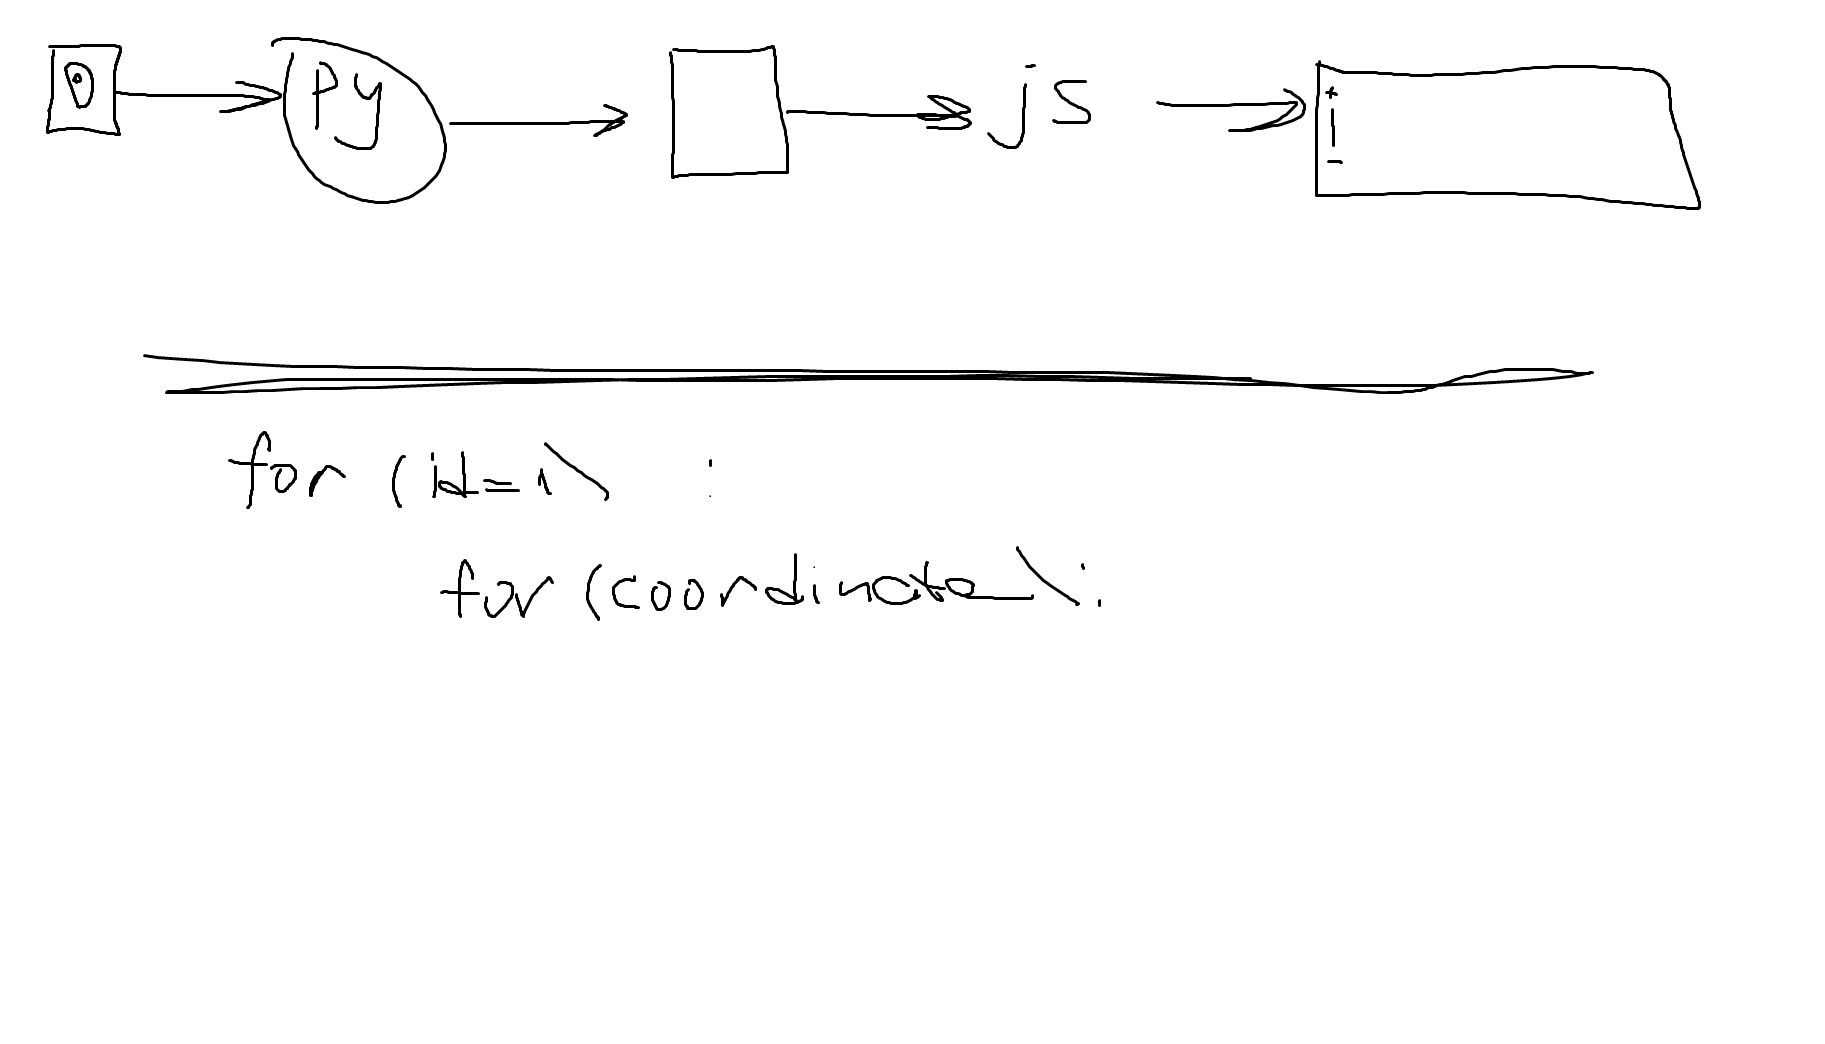 py
js
+
-
for (id=1) :
for (coordinate):